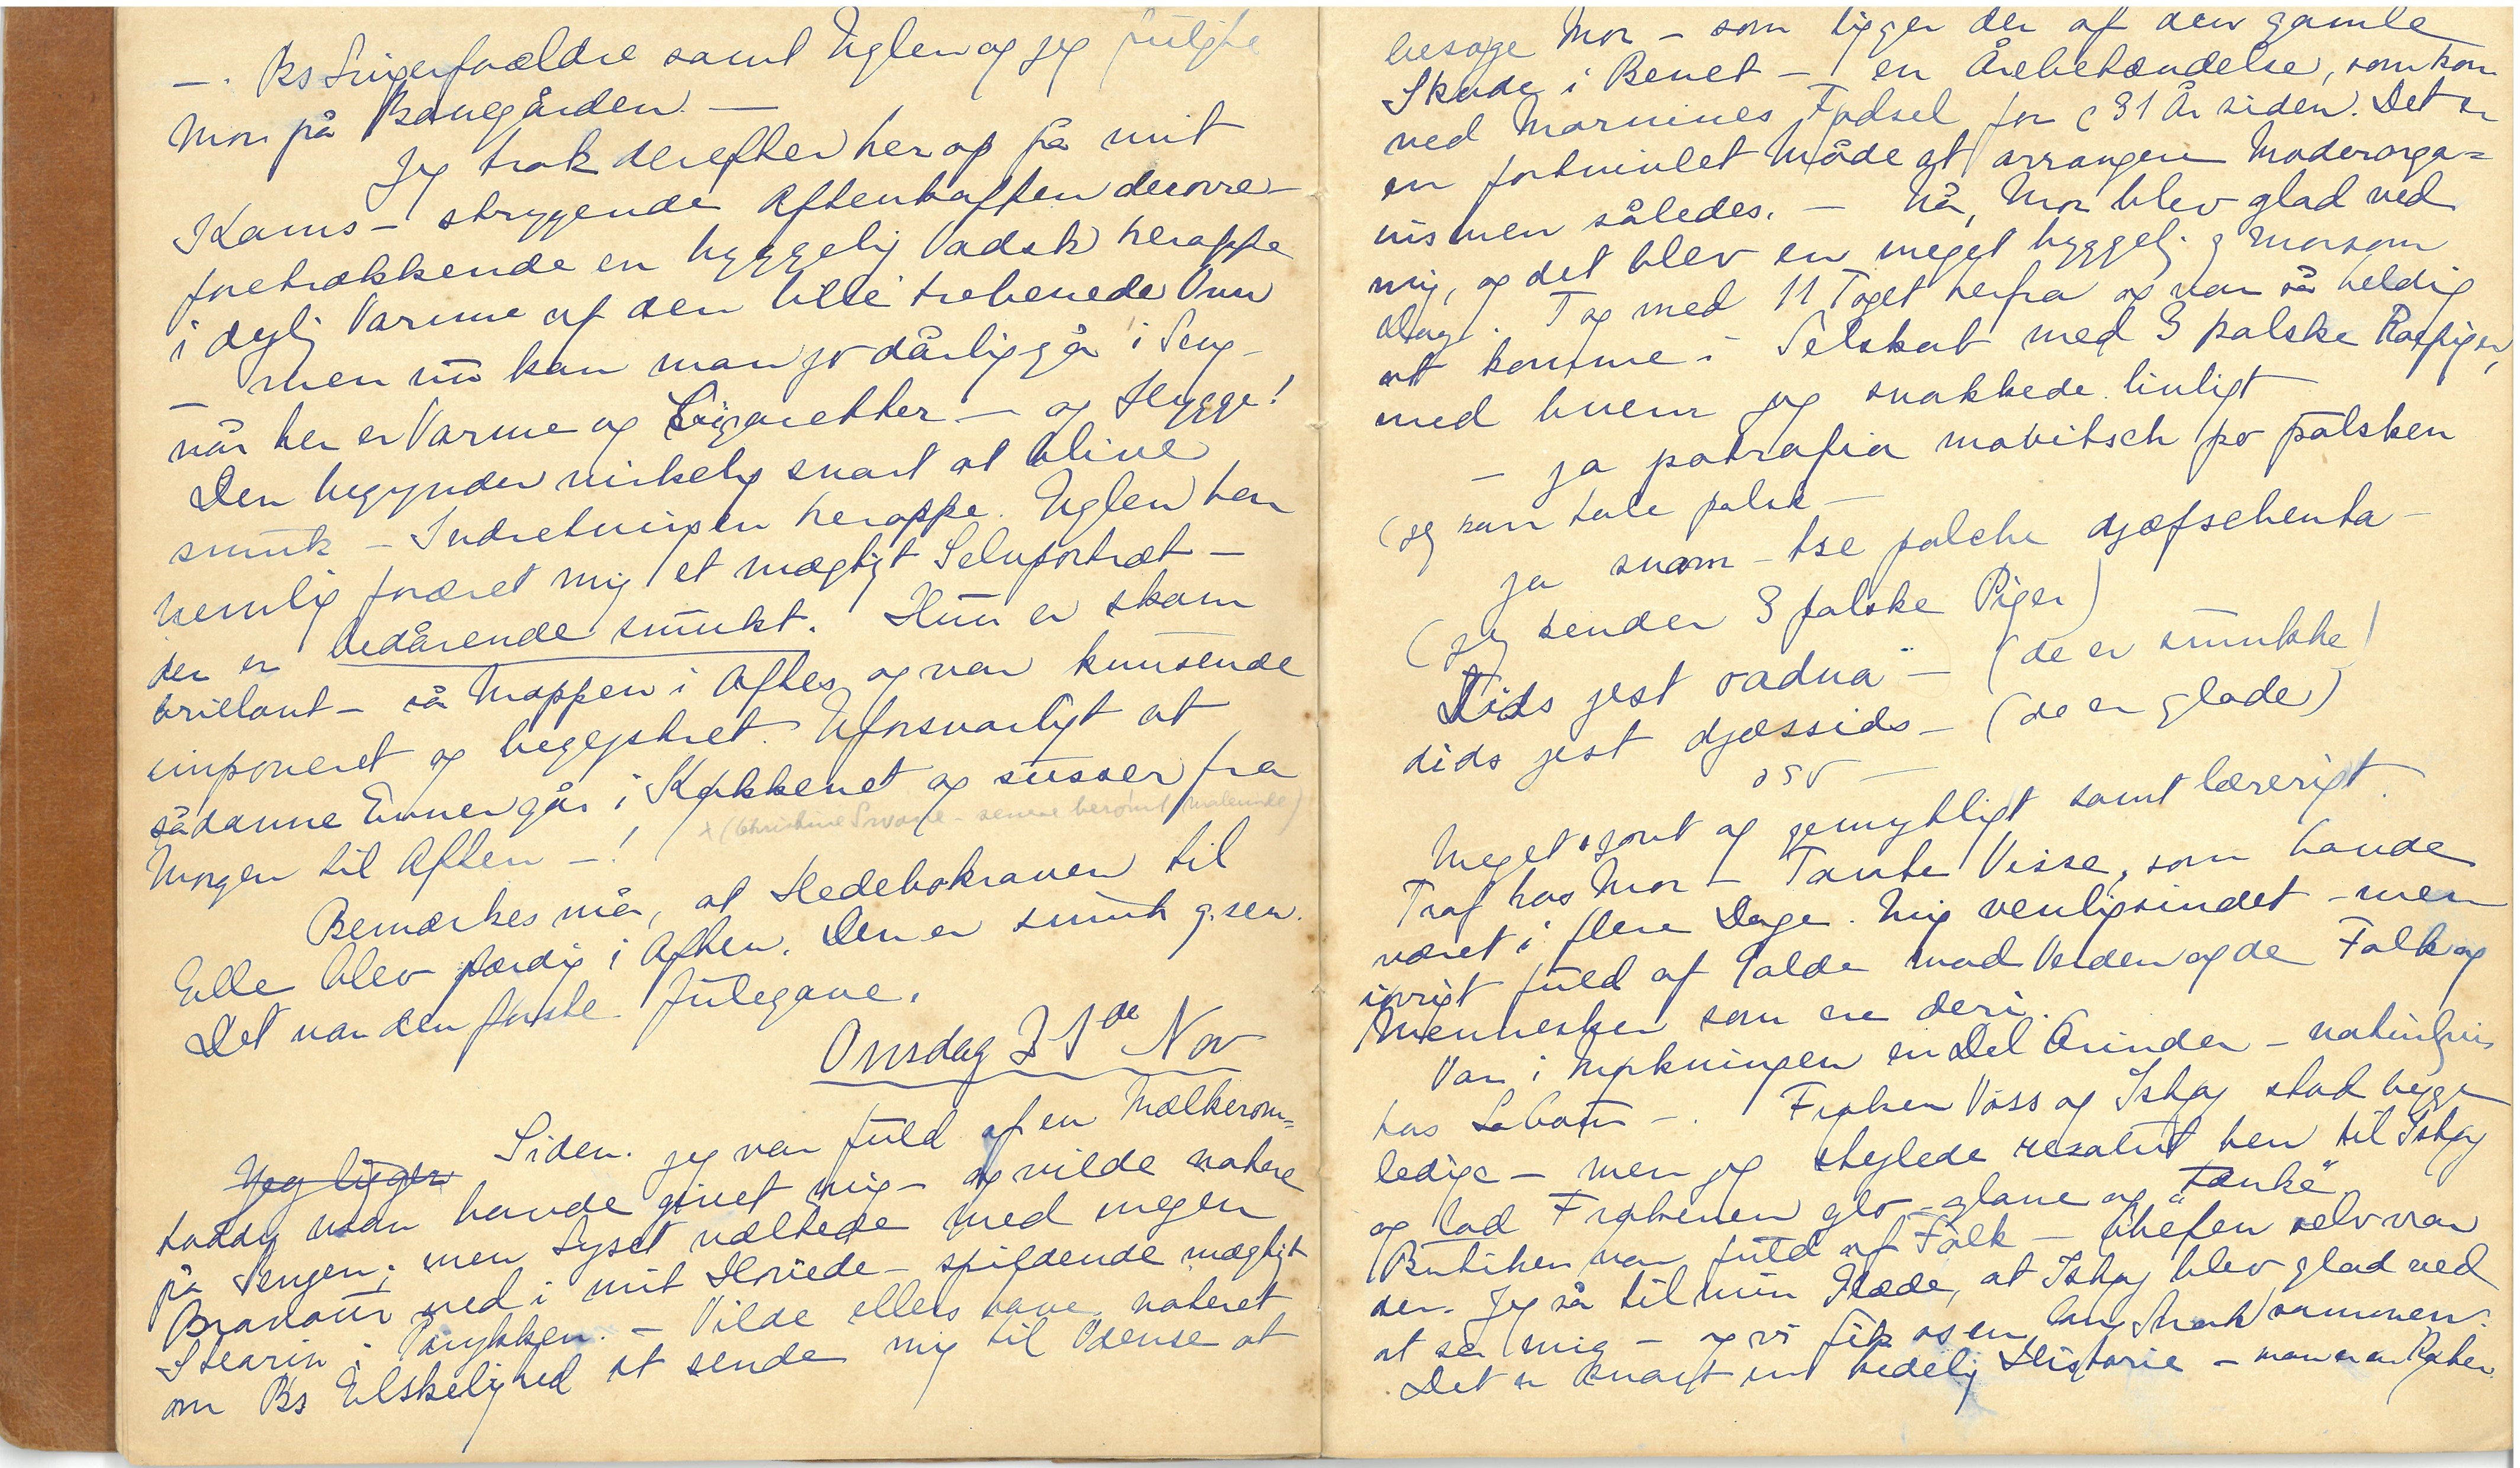 —. Bs Svigerforældre samt Uglen og jeg fulgte
Mor på Banegården —
Jeg trak derefter herop på mit
Kams — strygende Aftenkaffen derovre —
foretrækkende en hyggelig Vadsk heroppe
i dejlig Varme af den lille trebenede Ovn
— men nu kan man jo dårlig gå i Seng —
når her er Varme og Cigaretter — og Hygge!
Den begynder virkelig snart at blive
smuk — Indretningen heroppe. Uglen har
nemlig foræret mig et mægtigt Selvportræt —
der er bedårende smukt. Hun er skam
brillant — så Mappen i Aftes og var knusende
imponeret og begejstret. Uforsvarligt at
sådanne Evner går i Køkkenet og susser fra
+ (Christine Swane — senere berømt Malerinde)
Morgen til Aften —!
Bemærkes må, at Hedebokraven til
Elle blev færdig i Aften. Den er smuk g. sen.
Det var den første Julegave.
Onsdag 21de Nov
Jeg ligger Siden. jeg var fuld af en Mælkerom=
toddy man havde givet mig — og vilde notere
på Sengen; men Lyset væltede med megen
Bravour ned i mit Hovede — spildende mægtigt
Stearin i Parykken. — Vilde ellers have noteret
om Bs Elskelighed at sende mig til Odense at
besøge Mor — som ligger der af den gamle
Skade i Benet — en Årebetændelse, som kom
ved Mornines Fødsel for c 31 År siden. Det er
en fortvivlet Måde at arrangere Moderorga=
nismen således. — Nå, Mor blev glad ved
mig, og det blev en meget hyggelig og morsom
Dag. Tog med 11 Toget herfra og var så heldig
at komme i Selskab med 3 polske Roepiger,
med hvem jeg snakkede livligt
— ja potrafia movitsch po polsken
(jeg kan tale polsk —
ja snam — tse polche djæfschenta —
(jeg kender 3 polske Piger)
Dids jest vadna — (de er smukke)
dids jest djæssids — (de er glade)
osv —
Meget sjovt og gemytligt samt lærerigt.
Traf hos Mor — Tante Visse, som havde
været i flere Dage. Mig venligsindet — men
iøvrigt fuld af Galde mod Verden og de Folk og
Mennesker som ere deri.
Var i Mørkningen en Del Ærinder — naturligvis
hos — Frøken Voss og Ishøj stod begge
ledige — men jeg stejlede resolut hen til Ishøj
og lod Frøkenen glo — glane og "tænke"
Butiken var fuld af Folk — Chefen selv var
der. Jeg så til min Glæde, at Ishøj blev glad ved
at se mig — og vi fik os en lang Snak sammen.
Det er snart en kedelig Historie — man er en